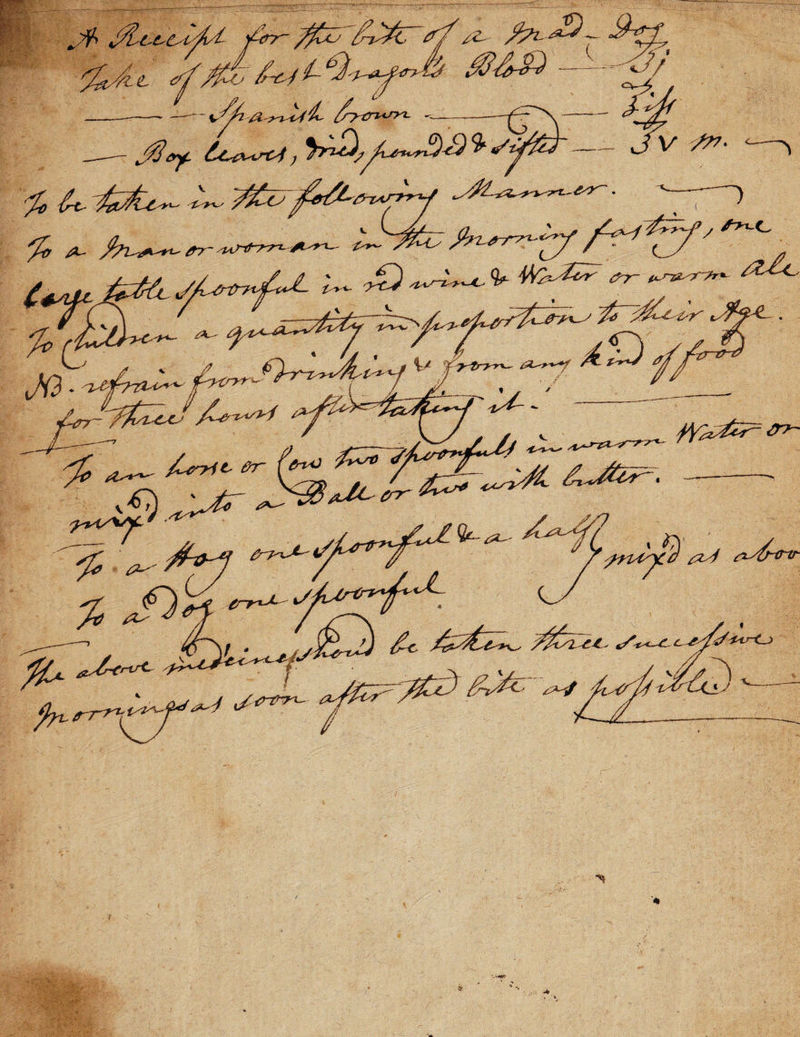 A Receipt for the bite of a Mad-Dog
Take of the best Dragon's Blood — ℥j
— — Spanish brown — — ℥ifs
— Box leaves, dried, pounded & sifted — ℥v m. —
To be taken in the following Manner. —
To a Man or woman in the Morning fasting, one
large table spoonful in red wine & Water or warm Ale
To Children a quantity in proportion to their Age.
NB. refrain from drinking & from any kind of food
for three hours after taking it. —
To an horse or Cow two spoonfuls in warm Water or
mix'd into a Ball or two with butter. —
To a Hog one spoonful & a half } mix'd as abov
To a Dog one spoonful
The above medecine shou'd be taken three successive
Mornings as soon after the bite as possible. —